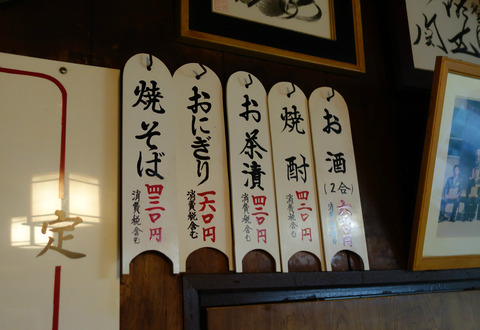 焼そば
四三〇円
消費税含む
おにぎり
一六〇円
消費税含む
お茶漬
四二〇円
消費税含む
焼酎
四二〇円
消費税含む
お酒
(2合)
六〇〇円
消費税含む
定